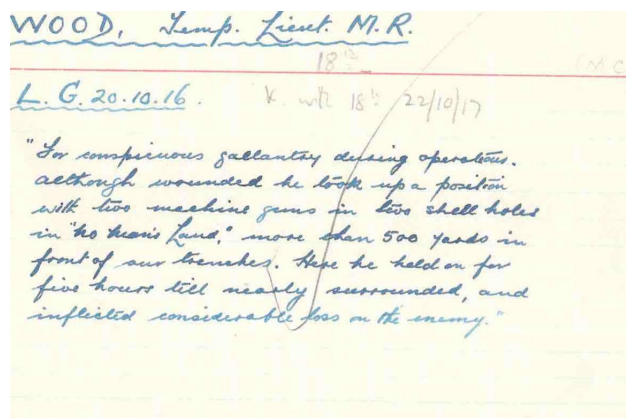 WOOD, Temp. Lieut. M.R.
18th
(M C
L. G. 20.10.16.
K. with 18th 22/10/17
"For conspicuous gallantry during operations.
Although wounded he took up a position
with two machine guns in two shell holes
in "No Man's Land," more than 500 yards in
front of our trenches. Here he held on for
five hours till nearly surrounded, and
inflicted considerable loss on the enemy."